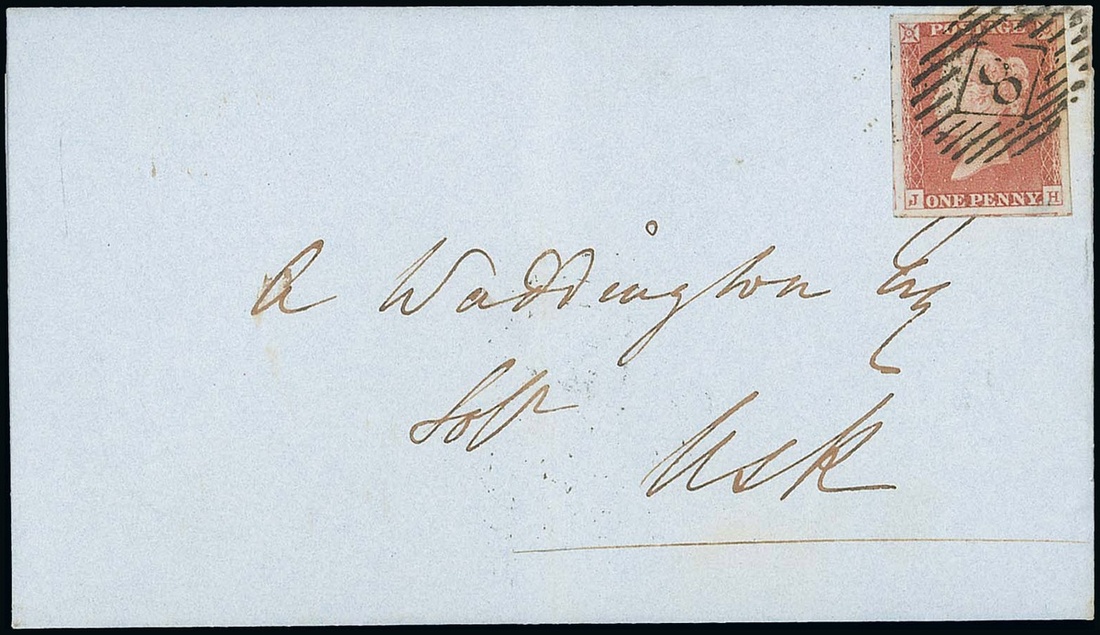 POSTAGE
8
J ONE PENNY H
A Waddington Esq
Solr
Usk